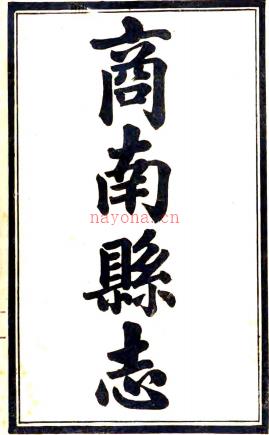 商南縣志
nayona.cn